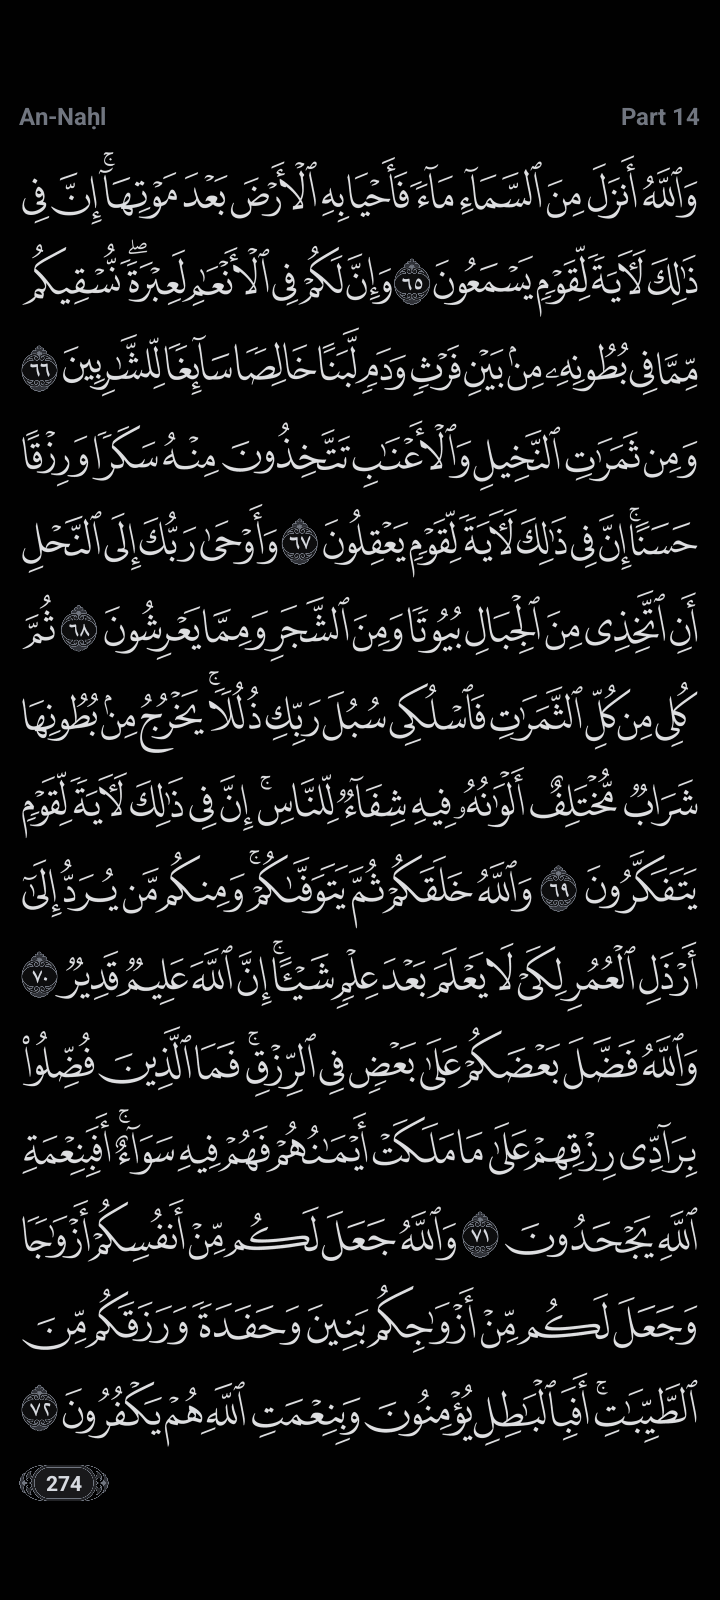 An-Naḥl
Part 14
وَٱللَّهُ أَنزَلَ مِنَ ٱلسَّمَآءِ مَآءً فَأَحْيَا بِهِ ٱلْأَرْضَ بَعْدَ مَوْتِهَآ ۚ إِنَّ فِى
ذَٰلِكَ لَـَٔايَةً لِّقَوْمٍ يَسْمَعُونَ ٦٥ وَإِنَّ لَكُمْ فِى ٱلْأَنْعَـٰمِ لَعِبْرَةً ۖ نُّسْقِيكُم
مِّمَّا فِى بُطُونِهِۦ مِنۢ بَيْنِ فَرْثٍ وَدَمٍ لَّبَنًا خَالِصًا سَآئِغًا لِّلشَّـٰرِبِينَ ٦٦
وَمِن ثَمَرَٰتِ ٱلنَّخِيلِ وَٱلْأَعْنَـٰبِ تَتَّخِذُونَ مِنْهُ سَكَرًا وَرِزْقًا
حَسَنًا ۗ إِنَّ فِى ذَٰلِكَ لَـَٔايَةً لِّقَوْمٍ يَعْقِلُونَ ٦٧ وَأَوْحَىٰ رَبُّكَ إِلَى ٱلنَّحْلِ
أَنِ ٱتَّخِذِى مِنَ ٱلْجِبَالِ بُيُوتًا وَمِنَ ٱلشَّجَرِ وَمِمَّا يَعْرِشُونَ ٦٨ ثُمَّ
كُلِى مِن كُلِّ ٱلثَّمَرَٰتِ فَٱسْلُكِى سُبُلَ رَبِّكِ ذُلُلًا ۚ يَخْرُجُ مِنۢ بُطُونِهَا
شَرَابٌ مُّخْتَلِفٌ أَلْوَٰنُهُۥ فِيهِ شِفَآءٌ لِّلنَّاسِ ۗ إِنَّ فِى ذَٰلِكَ لَـَٔايَةً لِّقَوْمٍ
يَتَفَكَّرُونَ ٦٩ وَٱللَّهُ خَلَقَكُمْ ثُمَّ يَتَوَفَّىٰكُمْ ۚ وَمِنكُم مَّن يُرَدُّ إِلَىٰٓ
أَرْذَلِ ٱلْعُمُرِ لِكَىْ لَا يَعْلَمَ بَعْدَ عِلْمٍ شَيْـًٔا ۚ إِنَّ ٱللَّهَ عَلِيمٌ قَدِيرٌ ٧٠
وَٱللَّهُ فَضَّلَ بَعْضَكُمْ عَلَىٰ بَعْضٍ فِى ٱلرِّزْقِ ۚ فَمَا ٱلَّذِينَ فُضِّلُوا۟
بِرَآدِّى رِزْقِهِمْ عَلَىٰ مَا مَلَكَتْ أَيْمَـٰنُهُمْ فَهُمْ فِيهِ سَوَآءٌ ۚ أَفَبِنِعْمَةِ
ٱللَّهِ يَجْحَدُونَ ٧١ وَٱللَّهُ جَعَلَ لَكُم مِّنْ أَنفُسِكُمْ أَزْوَٰجًا
وَجَعَلَ لَكُم مِّنْ أَزْوَٰجِكُم بَنِينَ وَحَفَدَةً وَرَزَقَكُم مِّنَ
ٱلطَّيِّبَـٰتِ ۚ أَفَبِٱلْبَـٰطِلِ يُؤْمِنُونَ وَبِنِعْمَتِ ٱللَّهِ هُمْ يَكْفُرُونَ ٧٢
274